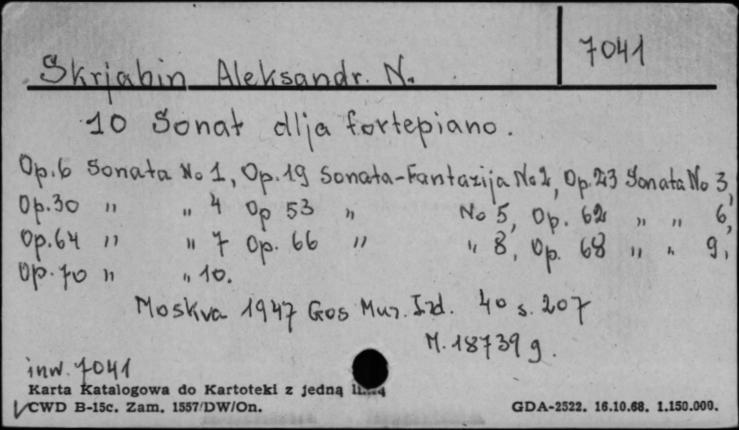 7041
Skrjabin Aleksandr. N.
10 Sonat dlja fortepiano.
Op.6 Sonata No 1, Op.19 Sonata-Fantazija No 2, Op.23 Sonata No 3,
Op.30 " " 4 Op 53 " No 5, Op. 62 " " 6,
Op.64 " " 7 Op. 66 " " 8, Op. 68 " " 9,
Op.70 " " 10.
Moskva 1947 Gos Muz. Izd. 40 s. 207
M.18739 g.
inw. 7041
Karta Katalogowa do Kartoteki z jedną linią
CWD B-15c. Zam. 1557/DW/On.
GDA-2522. 16.10.68. 1.150.000.